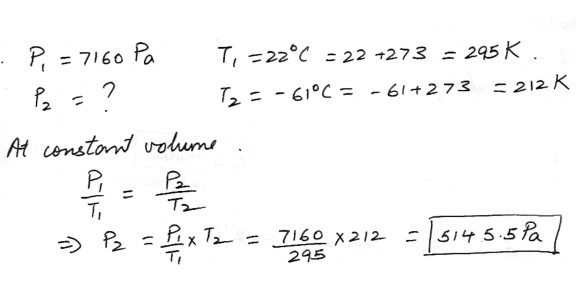 . P₁ = 7160 Pa T₁ = 22°C = 22 + 273 = 295 K .
P₂ = ? T₂ = - 61°C = - 61 + 273 = 212 K
At constant volume .
P₁/T₁ = P₂/T₂
⇒ P₂ = P₁/T₁ × T₂ = 7160/295 × 212 = 5145.5 Pa